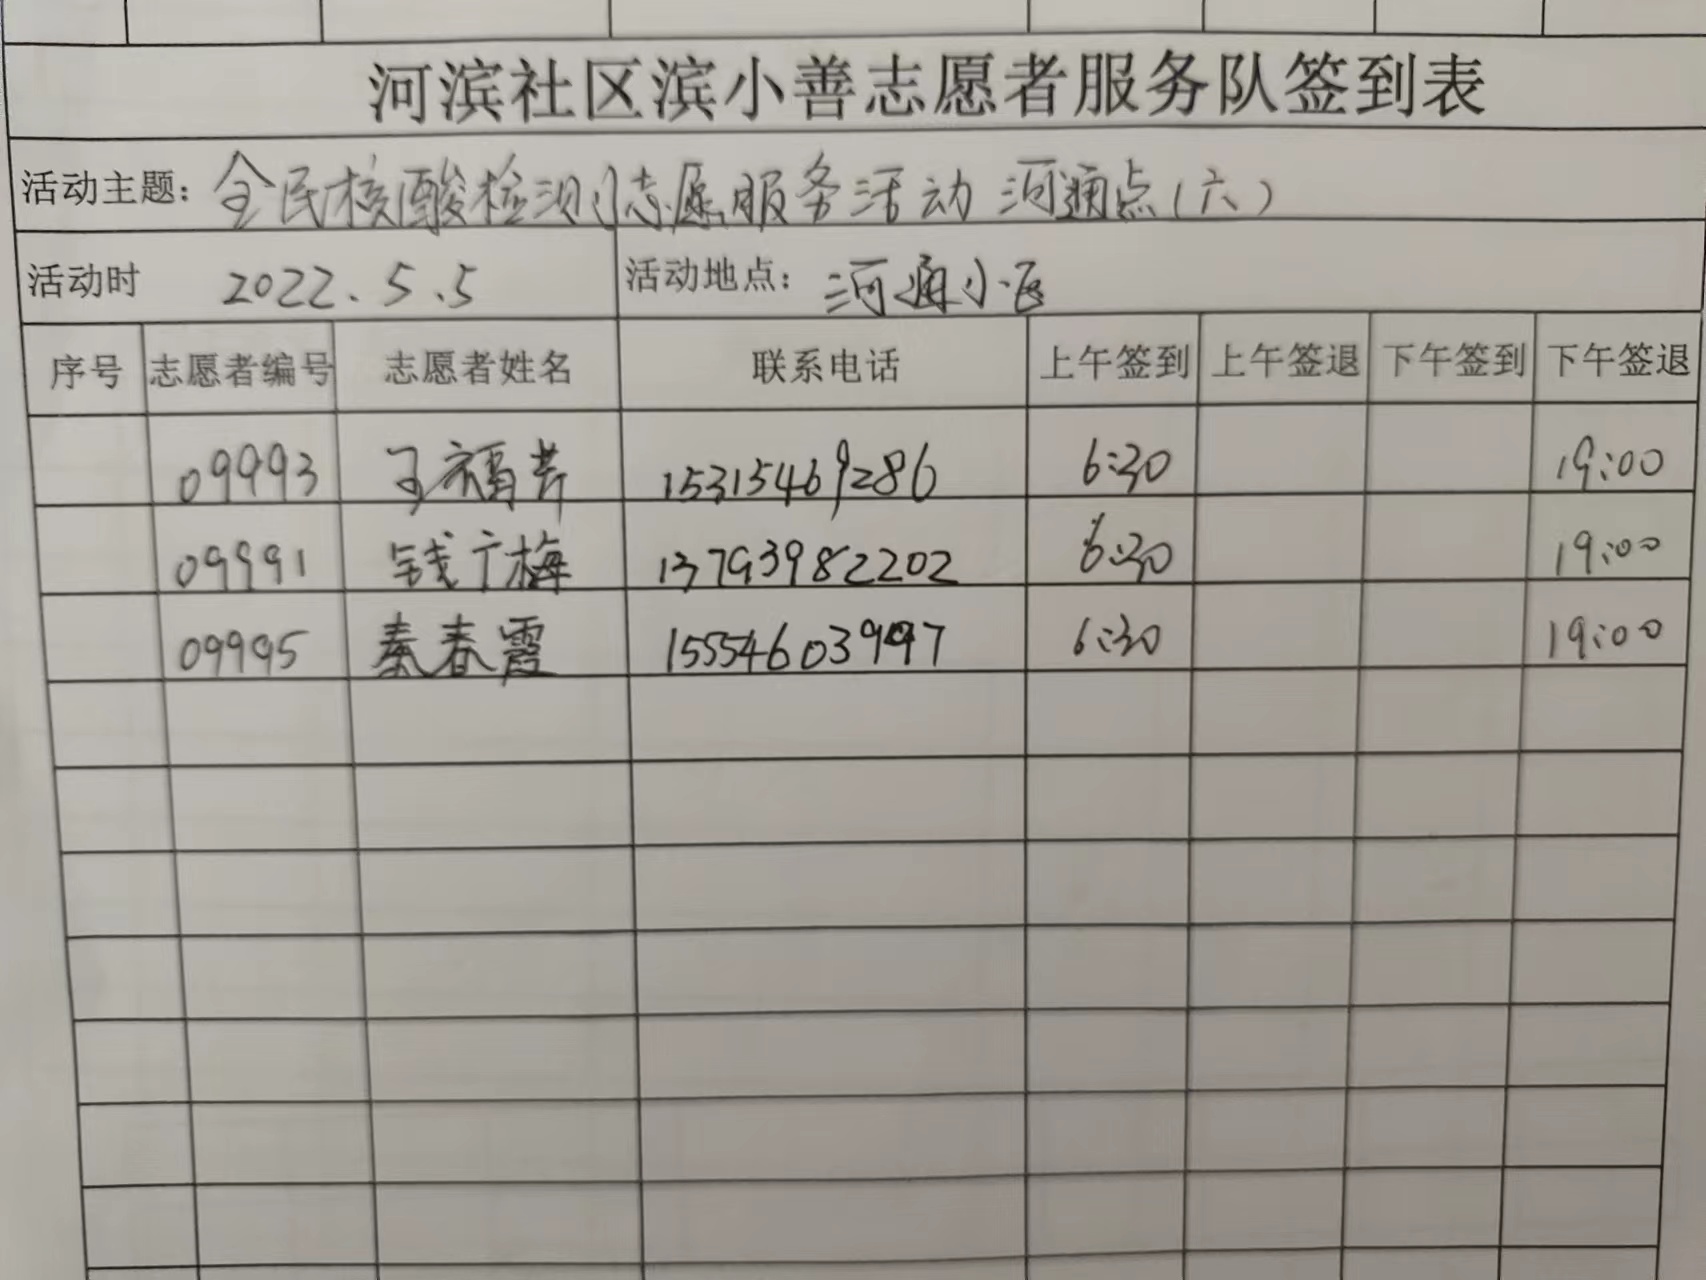 河滨社区滨小善志愿者服务队签到表
活动主题：全民核酸检测志愿服务活动 河通点（六）
活动时 2022.5.5 活动地点：河通小区
序号 志愿者编号 志愿者姓名 联系电话 上午签到 上午签退 下午签到 下午签退
09993 王福芹 15315469286 6:30 19:00
09991 钱广梅 13793982202 6:30 19:00
09995 秦春霞 15554603997 6:30 19:00